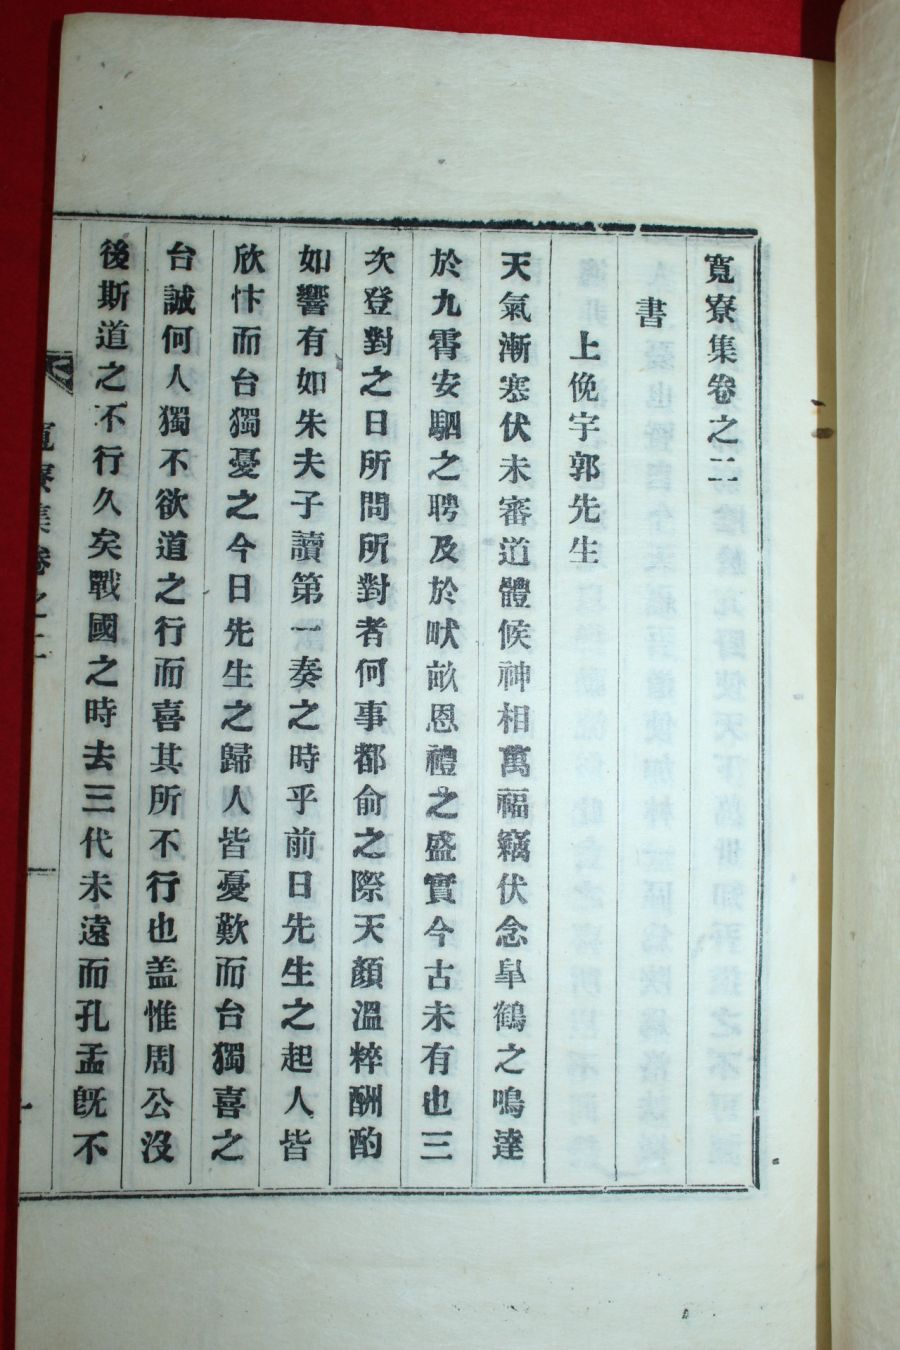 寬寮集卷之二
書
上俛宇郭先生
天氣漸寒伏未審道體候神相萬福竊伏念臯鶴之鳴達
於九霄安駟之聘及於畎畝恩禮之盛實今古未有也三
次登對之日所問所對者何事都俞之際天顏溫粹酬酌
如響有如朱夫子讀第一奏之時乎前日先生之起人皆
欣忭而台獨憂之今日先生之歸人皆憂歎而台獨喜之
台誠何人獨不欲道之行而喜其所不行也盖惟周公沒
後斯道之不行久矣戰國之時去三代未遠而孔孟旣不
寬寮集卷之二